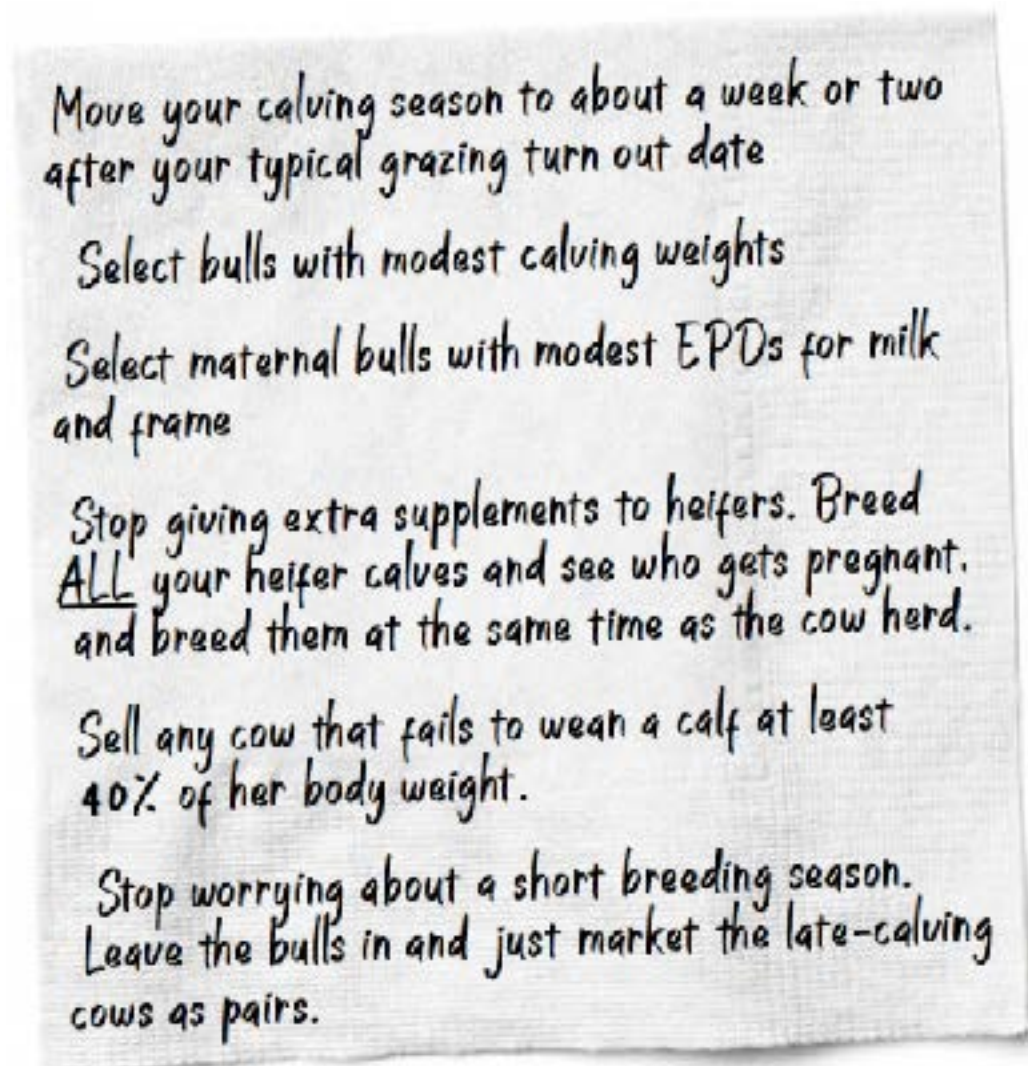 Move your calving season to about a week or two
after your typical grazing turn out date
Select bulls with modest calving weights
Select maternal bulls with modest EPDs for milk
and frame
Stop giving extra supplements to heifers. Breed
ALL your heifer calves and see who gets pregnant.
and breed them at the same time as the cow herd.
Sell any cow that fails to wean a calf at least
40% of her body weight.
Stop worrying about a short breeding season.
Leave the bulls in and just market the late-calving
cows as pairs.